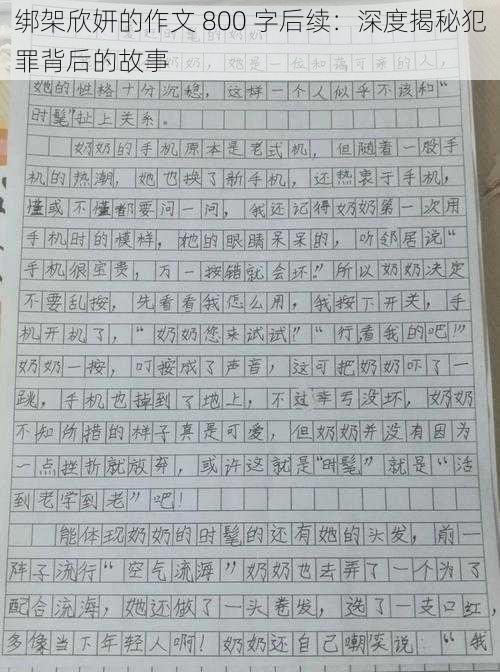 绑架欣妍的作文 800 字后续：深度揭秘犯
罪背后的故事
她的性格十分沉稳，这样一个人似乎不该和“
时髦”扯上关系。
奶奶的手机原本是老式机，但随着一股手
机的热潮，她也换了新手机，还热衷于手机，
懂或不懂都要问一问，我还记得奶奶第一次用
手机时的模样，她的眼睛呆呆的，听邻居说“
手机很宝贵，万一按错就会坏！”所以奶奶决定
不要乱按，先看看我怎么用，我按下开关，手
机开机了，“奶奶您来试试？”“行，看我的吧！”
奶奶一按，叮按成了声音，这可把奶奶吓了一
跳，手机也掉到了地上，不过幸亏没坏，奶奶
不知所措的样子真是可爱，但奶奶并没有因为
一点挫折就放弃，或许这就是“时髦”就是“活
到老学到老”吧！
能体现奶奶的时髦的还有她的头发，前一
阵子流行“空气流海”奶奶也去弄了一个为了
配合流海，她还做了一头卷发，选了一支口红，
多像当下年轻人啊！奶奶还自己嘲笑说：“我